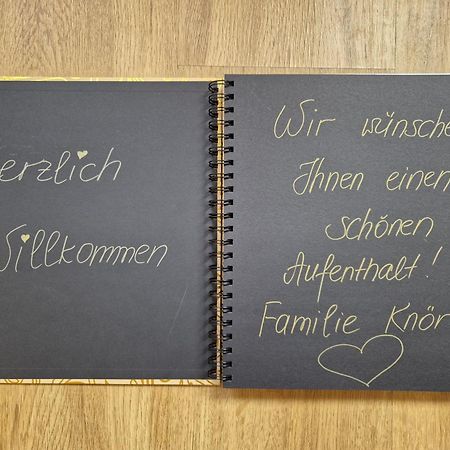 erzlich
Willkommen
Wir wünsche
Ihnen einen
schönen
Aufenthalt!
Familie Knör